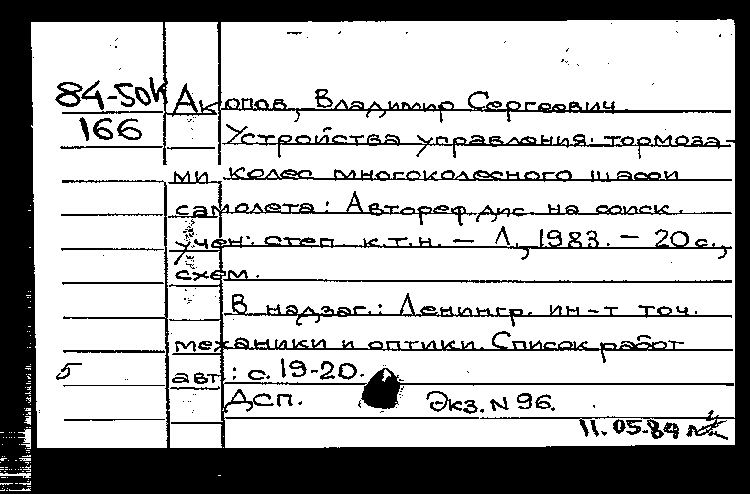 84-50к Акопов, Владимир Сергеевич.
166 Устройства управления тормоза-
ми колес многоколесного шасси
самолета: Автореф. дис. на соиск.
учен. степ. к.т.н. – Л., 1983. – 20 с.,
схем.
В надзаг.: Ленингр. ин-т точ.
механики и оптики. Список работ
5 авт.: с. 19-20.
ДСП. Экз. N 96.
11.05.84